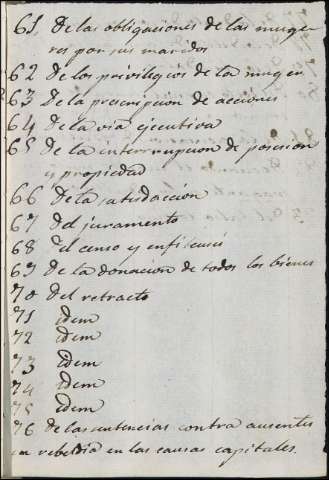 61 De las obligaciones de las muge
res por sus maridos
62 De los privilegios de la muger
63 De la prescripcion de acciones
64 De la via ejecutiva
65 De la interrupcion de posecion
y propiedad
66 De la satisdaccion
67 del juramento
68 El censo y enfiteusis
69 de la donacion de todos los bienes
70 del retracto
71 idem
72 idem
73 idem
74 idem
75 idem
76 de las sentencias contra ausentes
en rebeldia en las causas capitales.